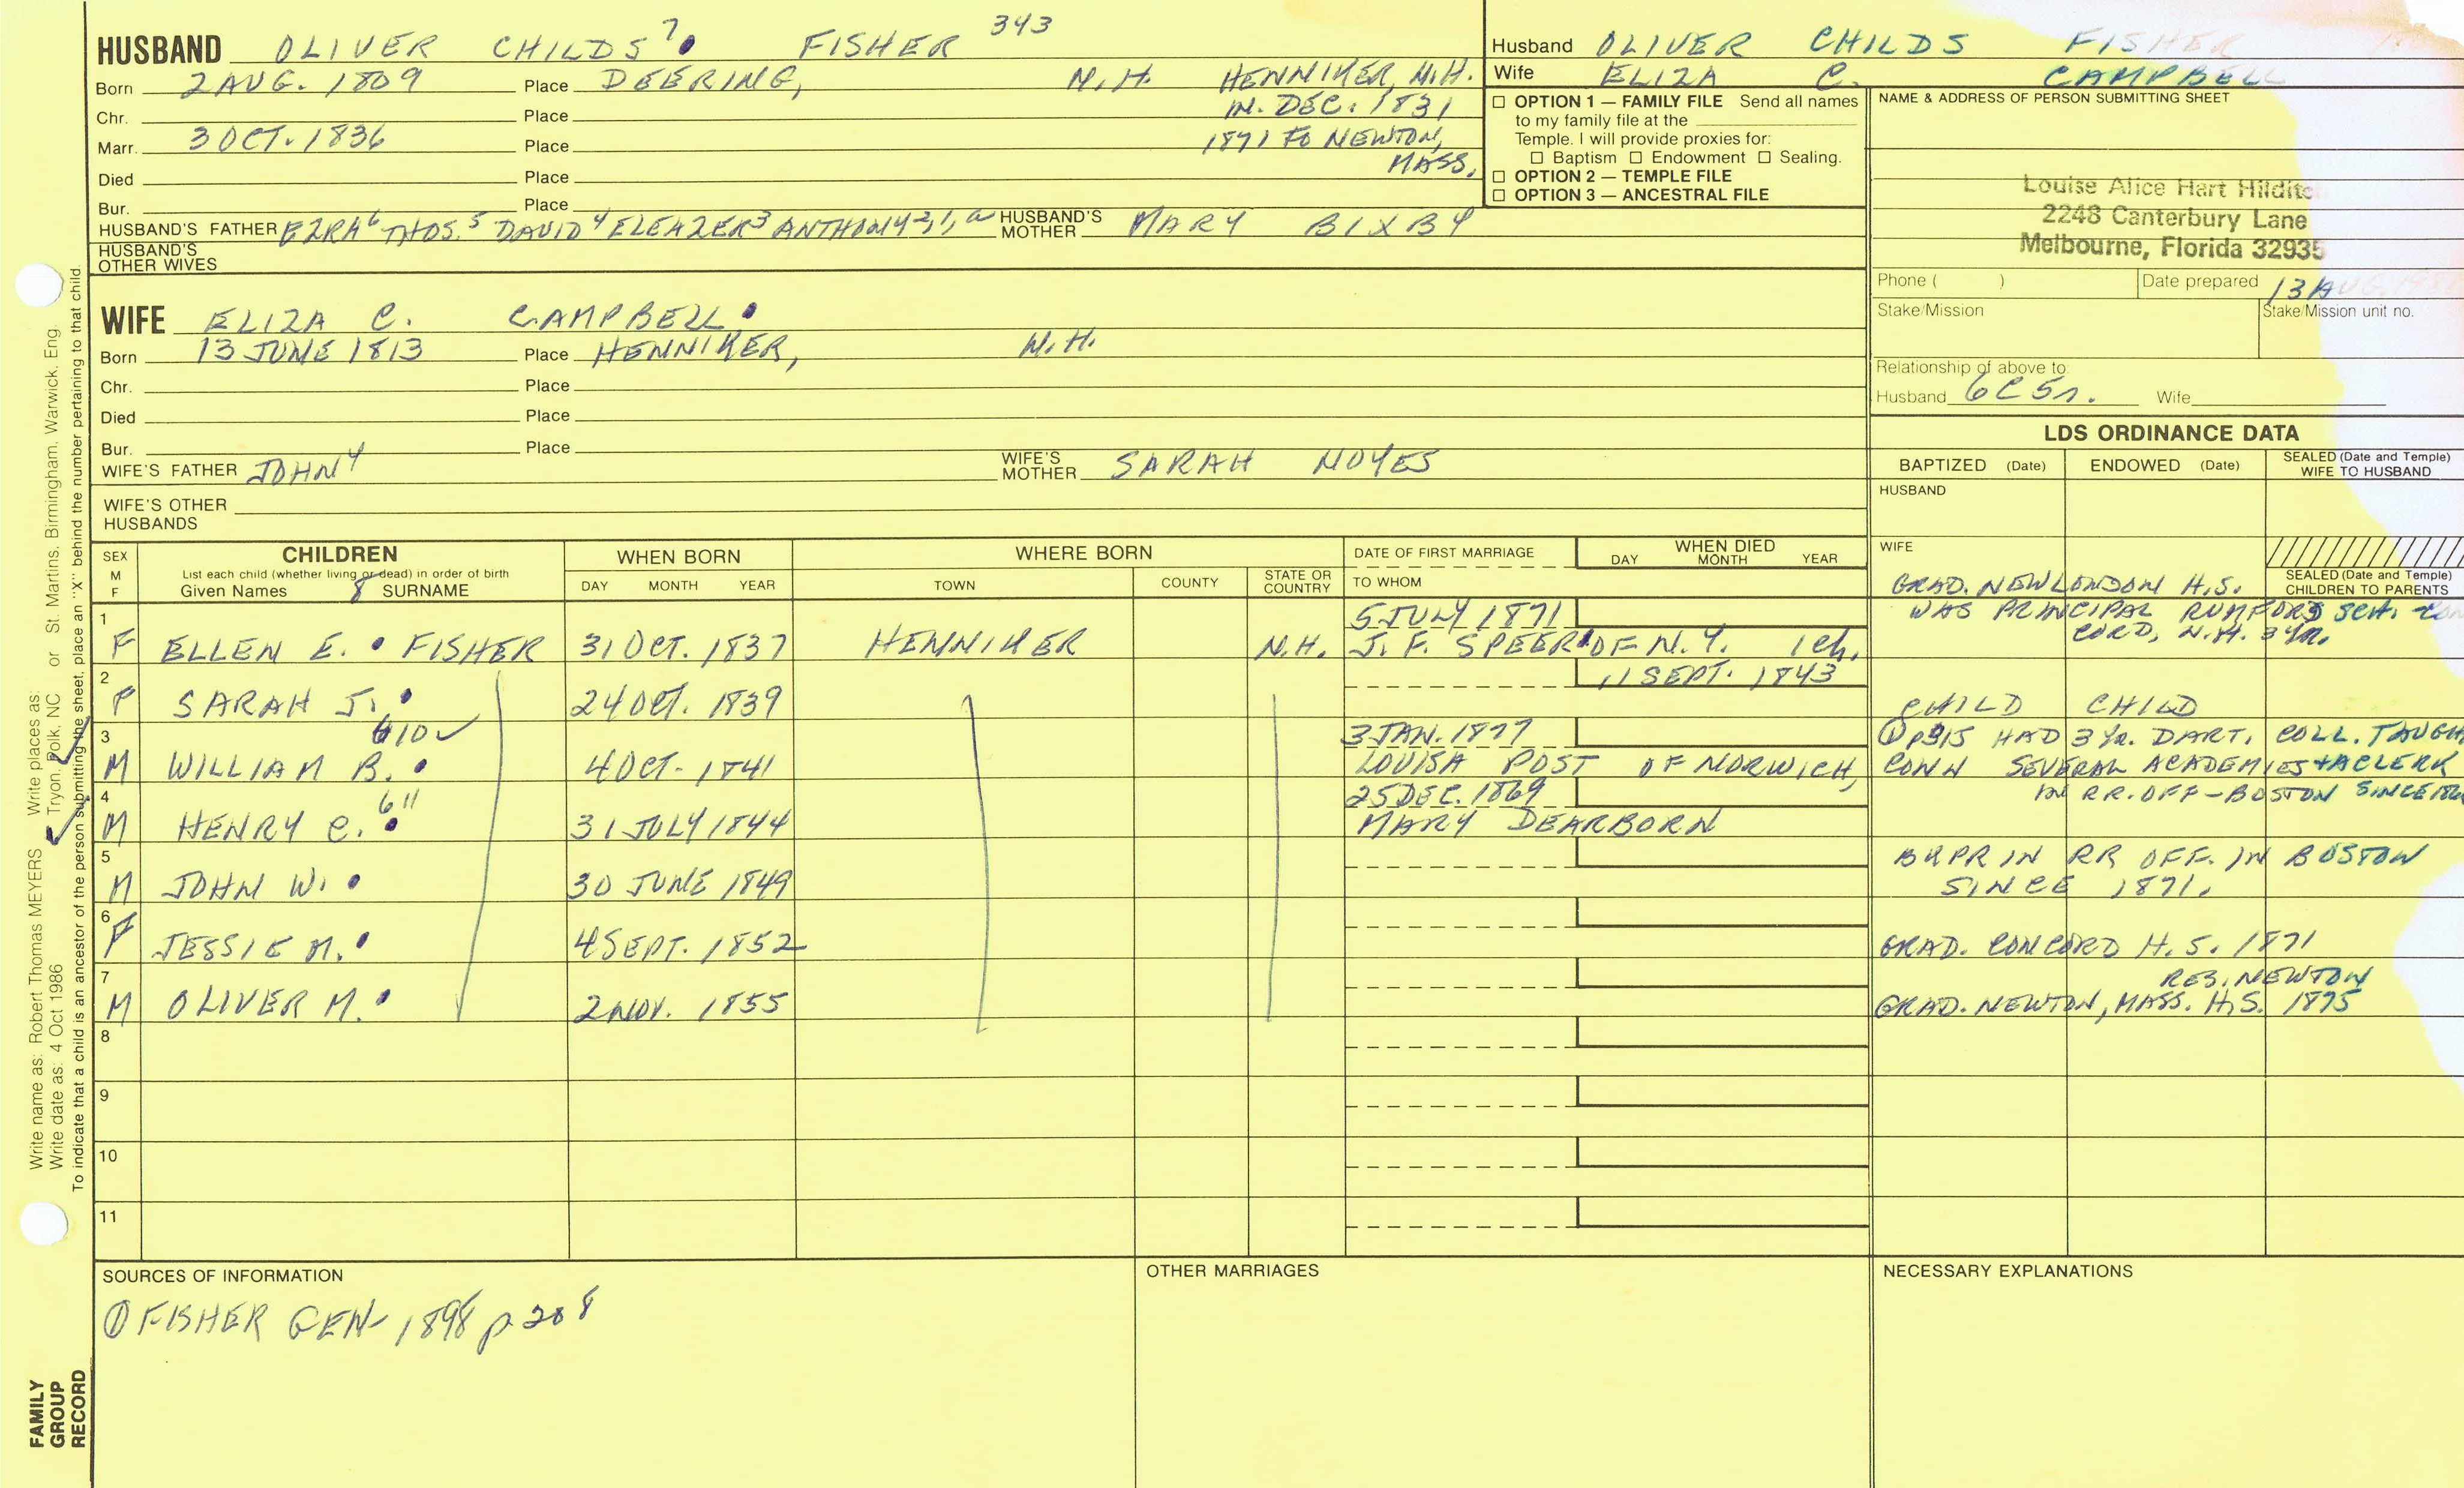 HUSBAND OLIVER CHILDS 7 FISHER 343
Born 2 AUG. 1809 Place DEERING, N.H. HENNIKER, N.H.
IN. DEC. 1831
Chr. Place
1871 TO NEWTON,
MASS.
Marr. 3 OCT. 1836 Place
Died Place
Bur. Place
HUSBAND'S FATHER EZRA 6 THOS. 5 DAVID 4 ELEAZER 3 ANTHONY 2,1,a HUSBAND'S MOTHER MARY BIXBY
HUSBAND'S OTHER WIVES
WIFE ELIZA C. CAMPBELL
Born 13 JUNE 1813 Place HENNIKER, N.H.
Chr. Place
Died Place
Bur. Place
WIFE'S FATHER JOHN 4 WIFE'S MOTHER SARAH NOYES
WIFE'S OTHER HUSBANDS
Husband OLIVER CHILDS FISHER
Wife ELIZA C. CAMPBELL
OPTION 1 — FAMILY FILE Send all names
to my family file at the
Temple. I will provide proxies for:
Baptism Endowment Sealing.
OPTION 2 — TEMPLE FILE
OPTION 3 — ANCESTRAL FILE
NAME & ADDRESS OF PERSON SUBMITTING SHEET
Louise Alice Hart Hildit
2248 Canterbury Lane
Melbourne, Florida 32935
Phone ( ) Date prepared 13 AUG.
Stake/Mission Stake/Mission unit no.
Relationship of above to:
Husband 6C5r. Wife
LDS ORDINANCE DATA
BAPTIZED (Date) ENDOWED (Date) SEALED (Date and Temple) WIFE TO HUSBAND
HUSBAND
WIFE
SEALED (Date and Temple) CHILDREN TO PARENTS
SEX M F
CHILDREN
List each child (whether living or dead) in order of birth
Given Names 8 SURNAME
WHEN BORN
DAY MONTH YEAR
WHERE BORN
TOWN COUNTY STATE OR COUNTRY
DATE OF FIRST MARRIAGE
TO WHOM
WHEN DIED
DAY MONTH YEAR
GRAD. NEW LONDON H.S.
WAS PRINCIPAL RUMFORD SCH. CON
CORD, N.H. 3 YR.
1 5 JULY 1871
F ELLEN E. FISHER 31 OCT. 1837 HENNIKER N.H. J. F. SPEER OF N.Y. 1 ch.
2 11 SEPT. 1843
F SARAH J. 24 OCT. 1839 CHILD CHILD
3 610 ✓ 3 JAN. 1877 ① p315 HAD 3 YR. DART. COLL. TAUGH
M WILLIAM B. 4 OCT. 1841 LOUISA POST OF NORWICH, CONN SEVERAL ACADEMIES + A CLERK
IN RR. OFF - BOSTON SINCE
4 611 25 DEC. 1869
M HENRY C. 31 JULY 1844 MARY DEARBORN
5 IN RR OFF. IN BOSTON
M JOHN W. 30 JUNE 1849 SINCE 1871.
6
F JESSIE M. 4 SEPT. 1852 GRAD. CONCORD H.S. 1871
7 RES. NEWTON
M OLIVER M. 2 NOV. 1855 GRAD. NEWTON, MASS. H.S. 1875
8
9
10
11
SOURCES OF INFORMATION
① FISHER GEN - 1898 p 208
OTHER MARRIAGES
NECESSARY EXPLANATIONS
Write name as: Robert Thomas MEYERS Write places as:
Write date as: 4 Oct 1986 Tryon, Polk, NC or St. Martins, Birmingham, Warwick, Eng.
To indicate that a child is an ancestor of the person submitting the sheet, place an "X" behind the number pertaining to that child.
FAMILY
GROUP
RECORD